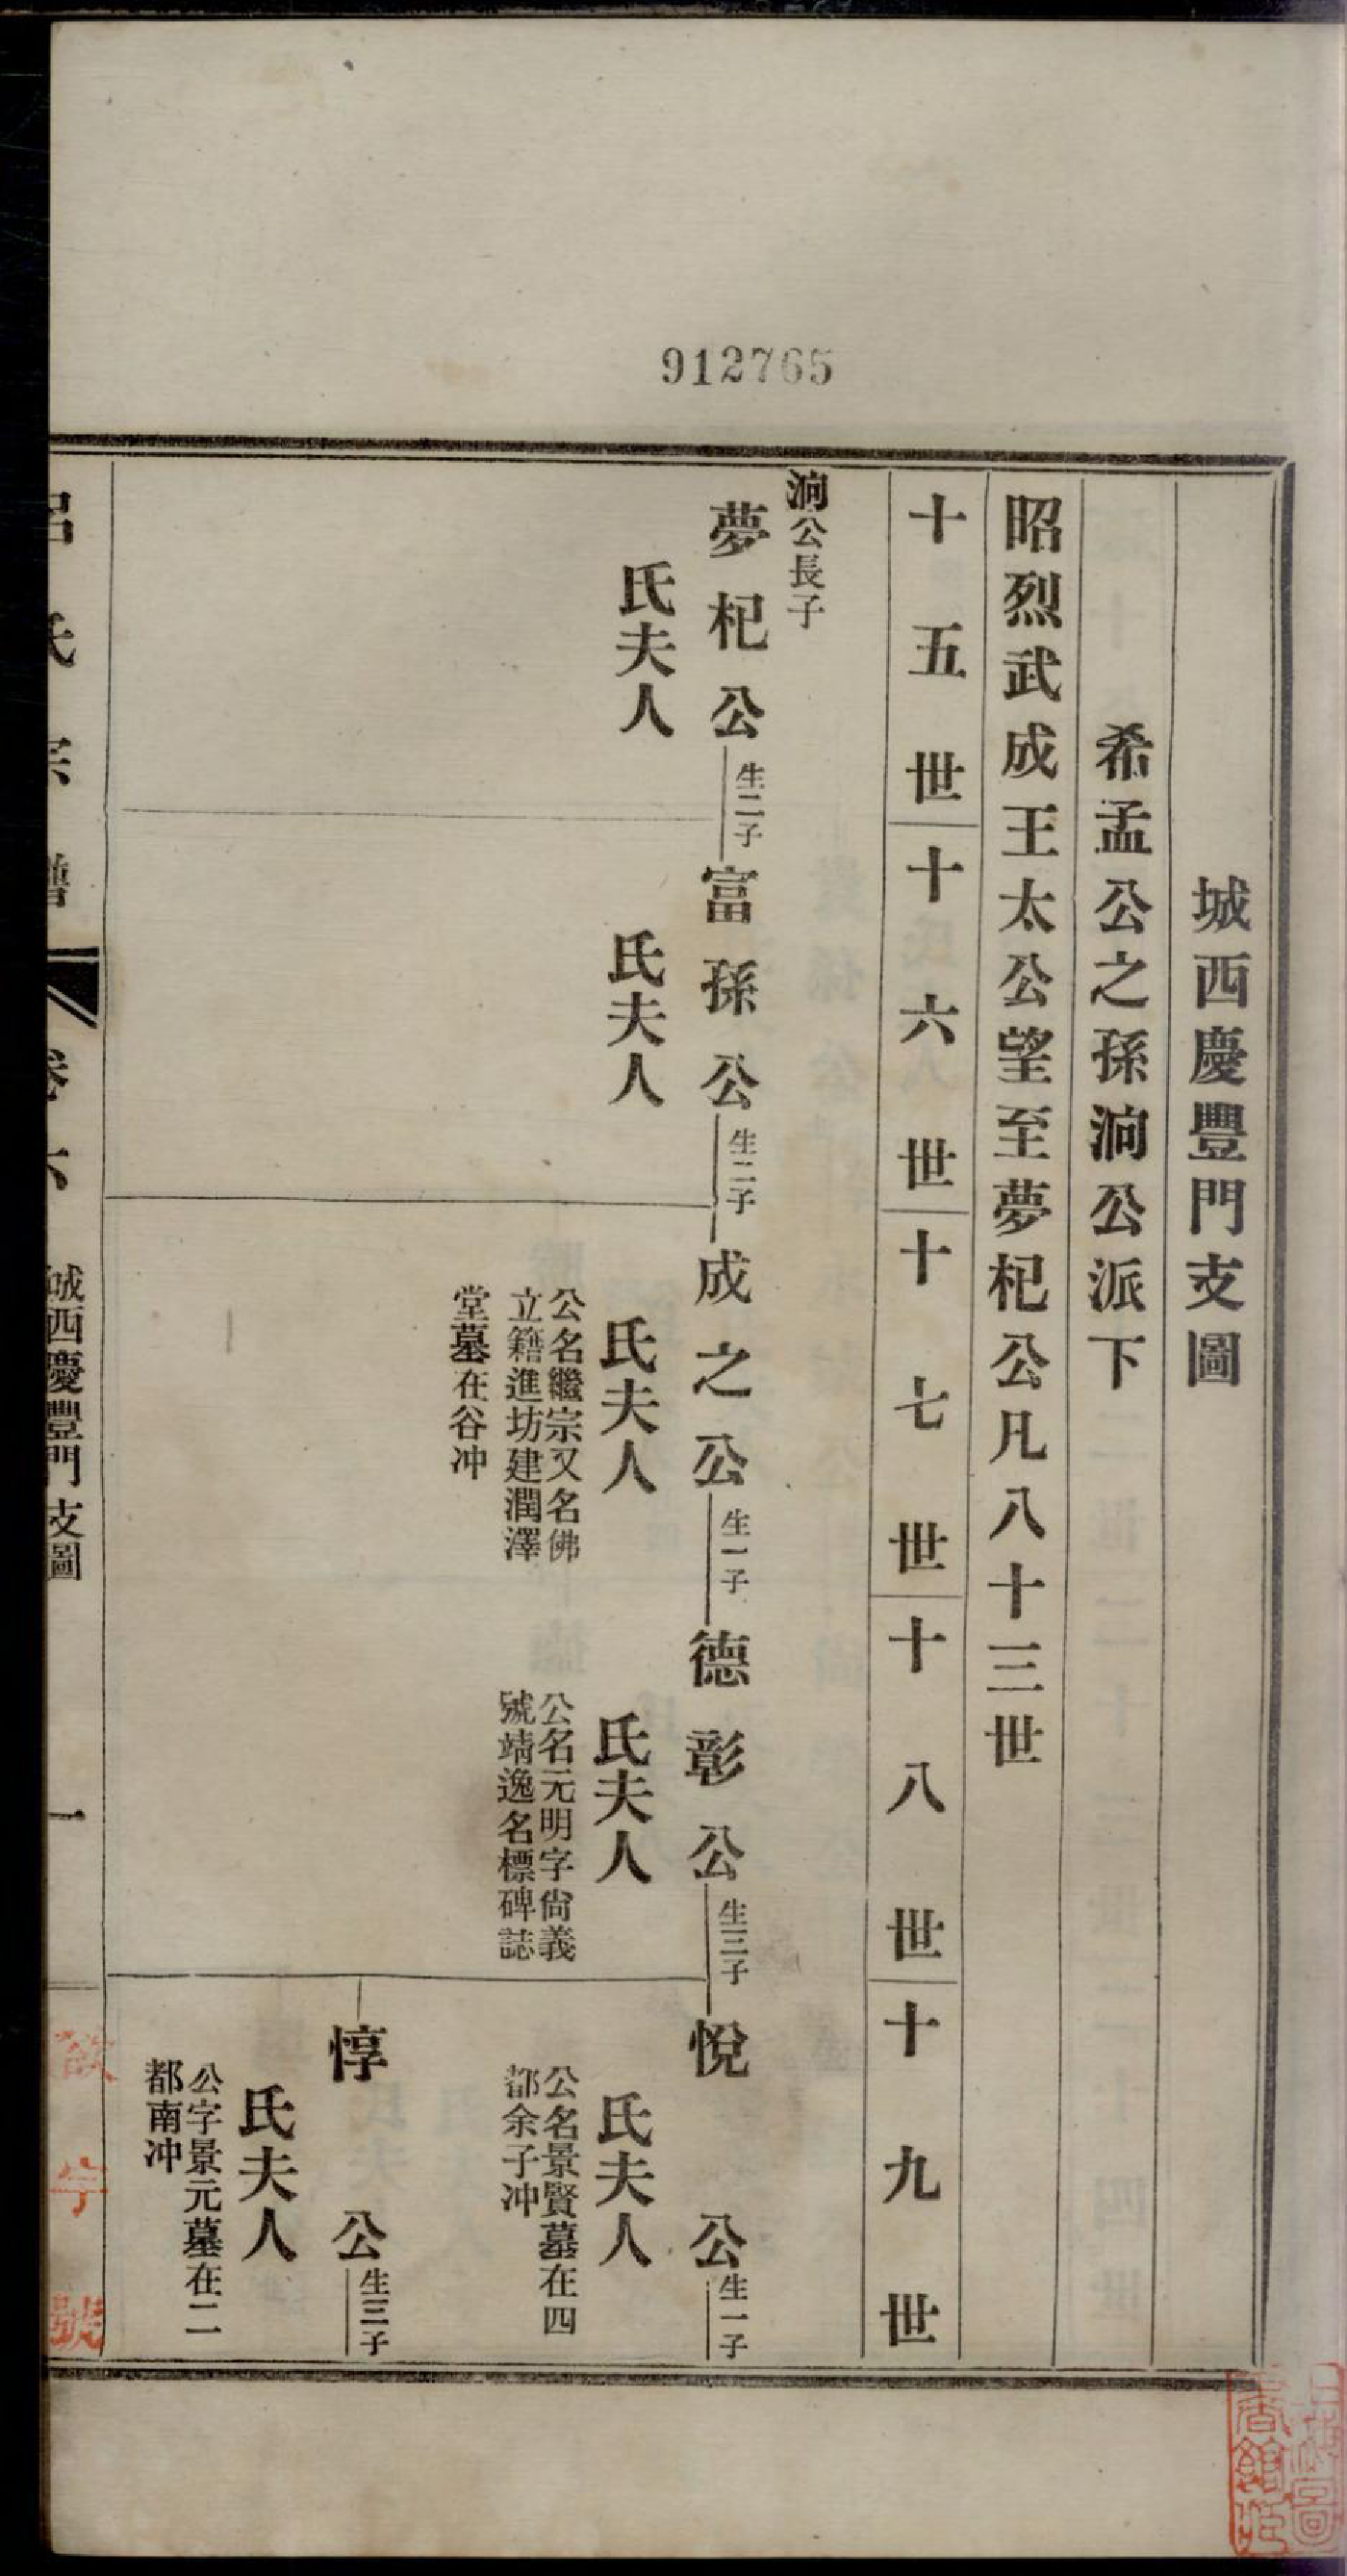 912765
城西慶豐門支圖
希孟公之孫泂公派下
昭烈武成王太公望至夢杞公凡八十三世
十五世
十六世
十七世
十八世
十九世
泂公長子
夢杞公
生二子
氏夫人
富孫公
生二子
氏夫人
成之公
生一子
氏夫人
公名繼宗又名佛
立籍進坊建潤澤
堂墓在谷冲
德彰公
生三子
氏夫人
公名元明字尙義
號靖逸名標碑誌
悅公
生一子
氏夫人
公名景賢墓在四
都余子冲
惇公
生三子
氏夫人
公字景元墓在二
都南冲
呂氏宗譜
卷六
城西慶豐門支圖
一
字號